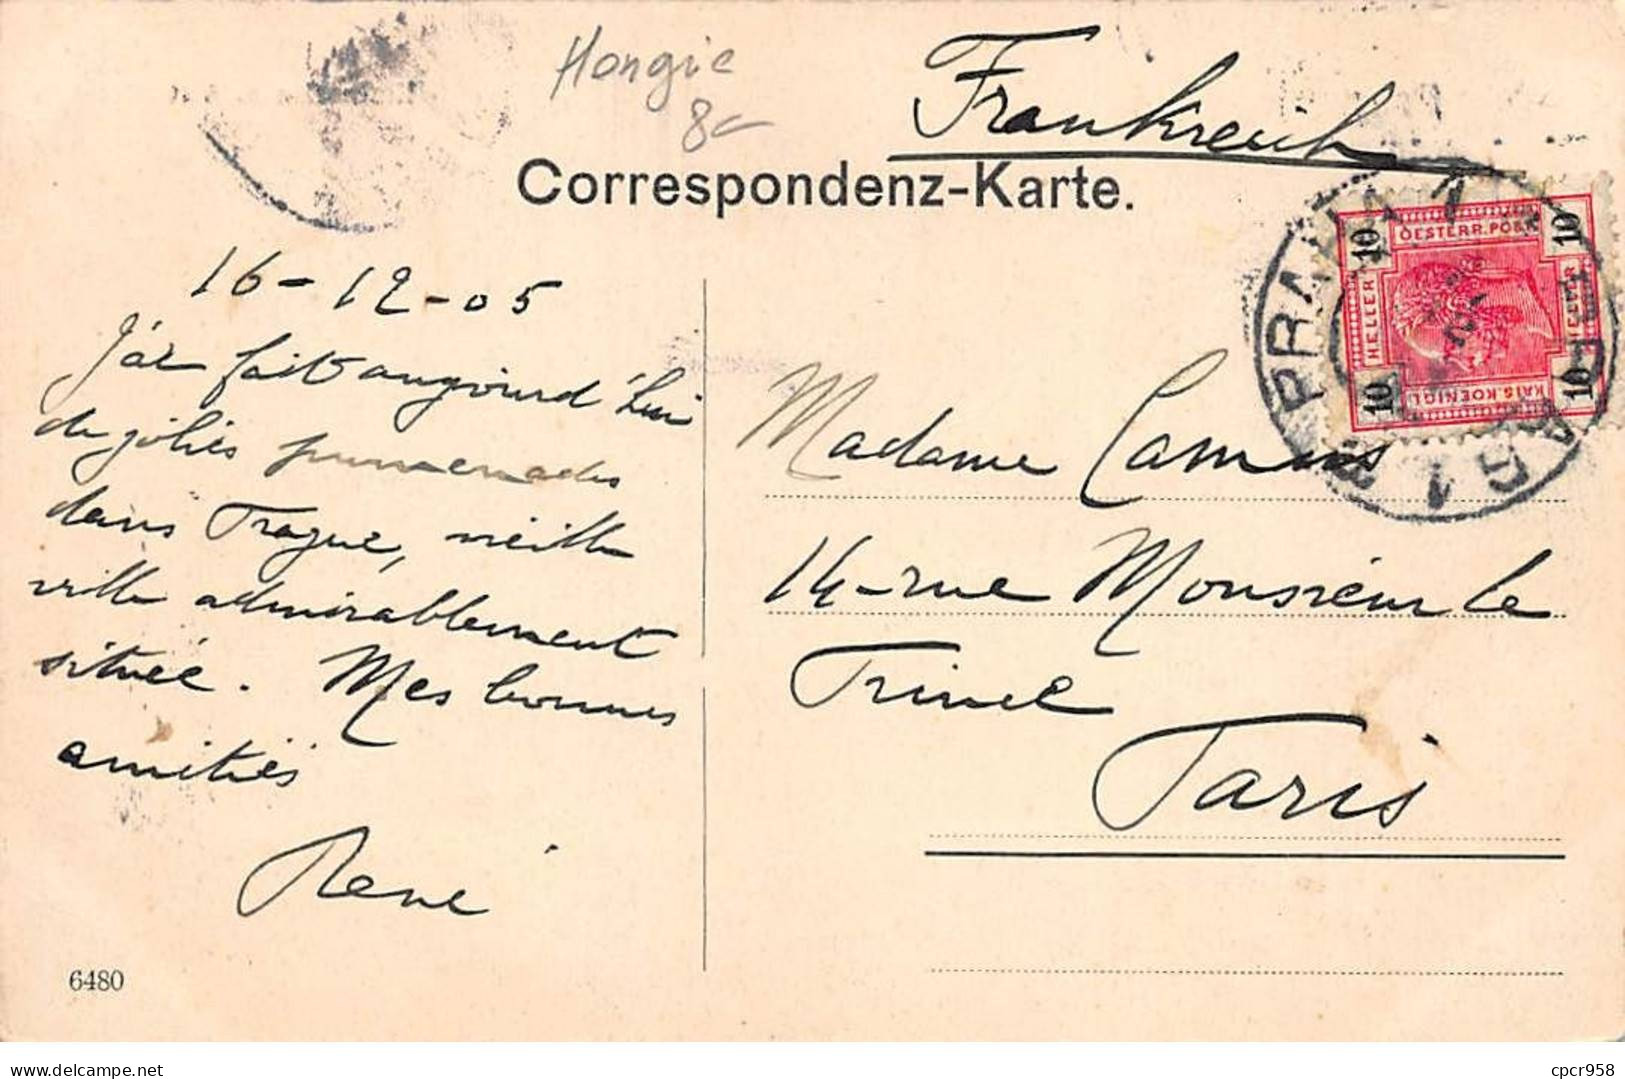 Hongie
8
Frankreich
Correspondenz-Karte.
OESTERR. POST
10 10
HELLER HELLER
10 10
KAIS. KOENIGL.
PRAHA 1
PRAG 1
16-12-05
J'ai fait aujourd'hui
de jolies promenades
dans Prague, vieille
ville admirablement
située. Mes bonnes
amitiés
René
Madame Camus
14-rue Monsieur le
Prince
Paris
6480
delcampe.net
cpcr958